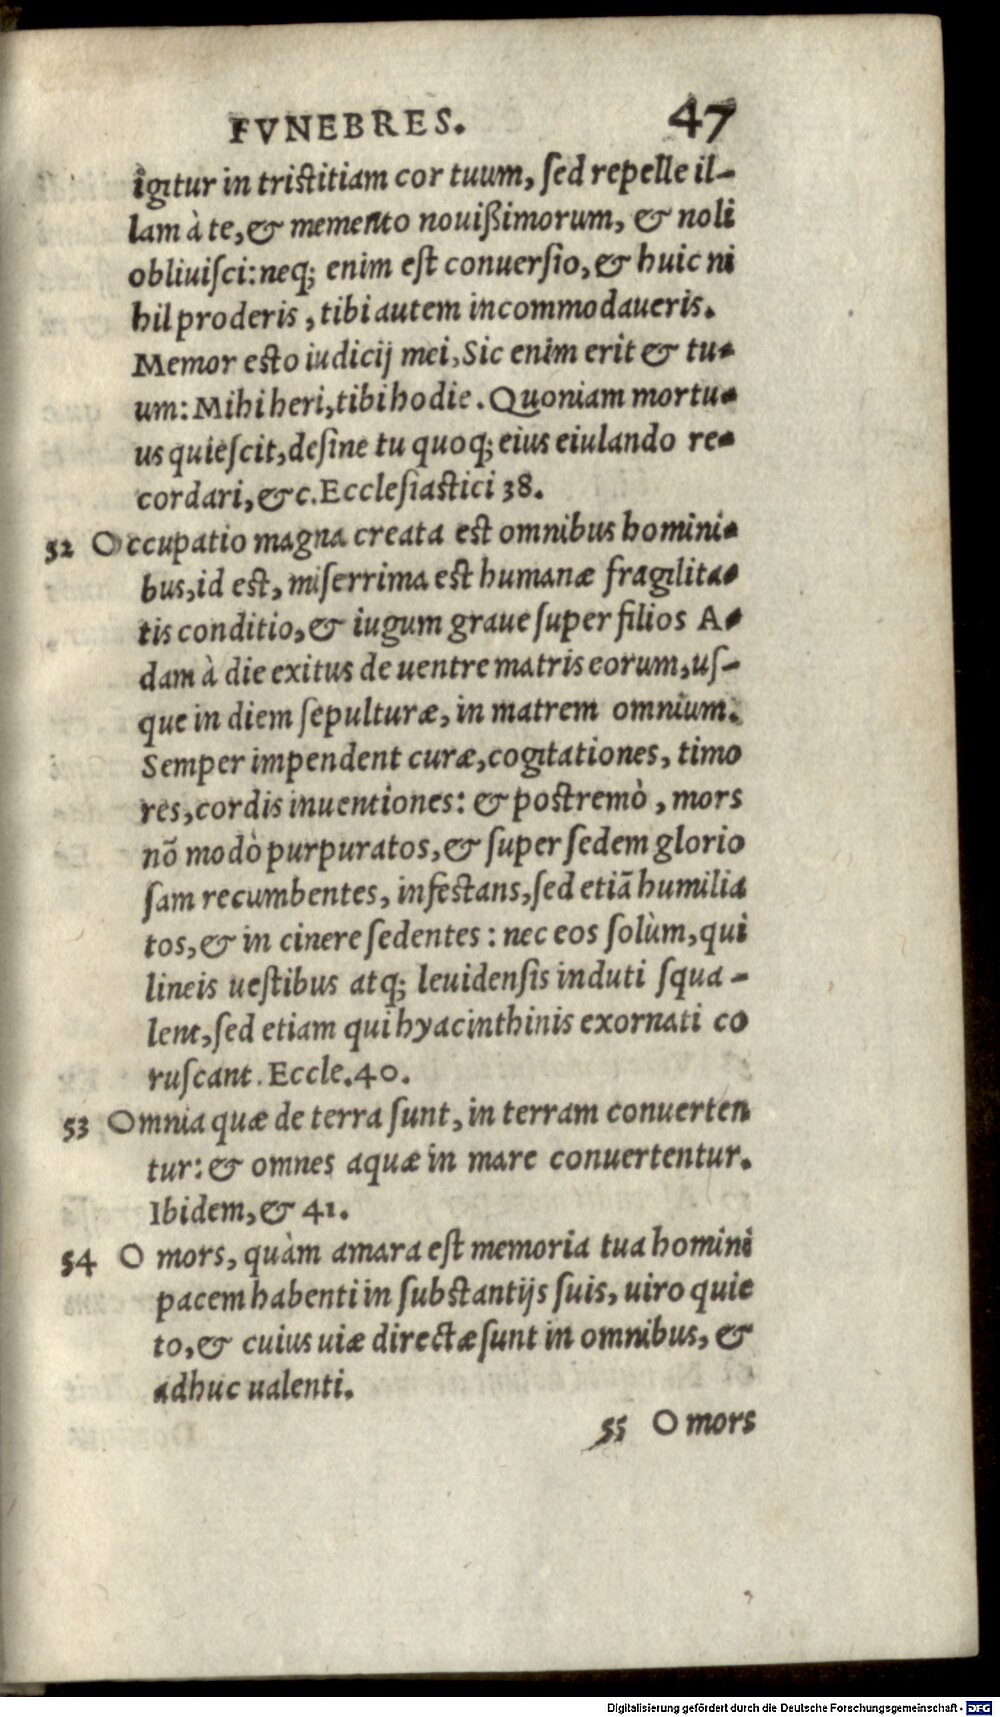 FVNEBRES. 47
igitur in tristitiam cor tuum, ſed repelle il-
lam à te, & memento nouißimorum, & noli
obliuiſci: neq; enim eſt conuerſio, & huic ni
hil proderis, tibi autem incommodaueris.
Memor esto iudicij mei, Sic enim erit & tu-
um: Mihi heri, tibi hodie. Quoniam mortu-
us quieſcit, deſine tu quoq; eius eiulando re-
cordari, &c. Eccleſiastici 38.
52 Occupatio magna creata est omnibus homini-
bus, id est, miſerrima est humanæ fragilita-
tis conditio, & iugum graue ſuper filios A-
dam à die exitus de uentre matris eorum, uſ-
que in diem ſepulturæ, in matrem omnium.
Semper impendent curæ, cogitationes, timo
res, cordis inuentiones: & postremò, mors
nō modò purpuratos, & ſuper ſedem glorio
ſam recumbentes, infestans, ſed etiā humilia
tos, & in cinere ſedentes: nec eos ſolùm, qui
lineis ueſtibus atq; leuidenſis induti ſqua-
lent, ſed etiam qui hyacinthinis exornati co
ruſcant. Eccle. 40.
53 Omnia quæ de terra ſunt, in terram conuerten
tur: & omnes aquæ in mare conuertentur.
Ibidem, & 41.
54 O mors, quàm amara eſt memoria tua homini
pacem habenti in ſubstantijs ſuis, uiro quie
to, & cuius uiæ directæ ſunt in omnibus, &
adhuc ualenti.
55 O mors
Digitalisierung gefördert durch die Deutsche Forschungsgemeinschaft - DFG